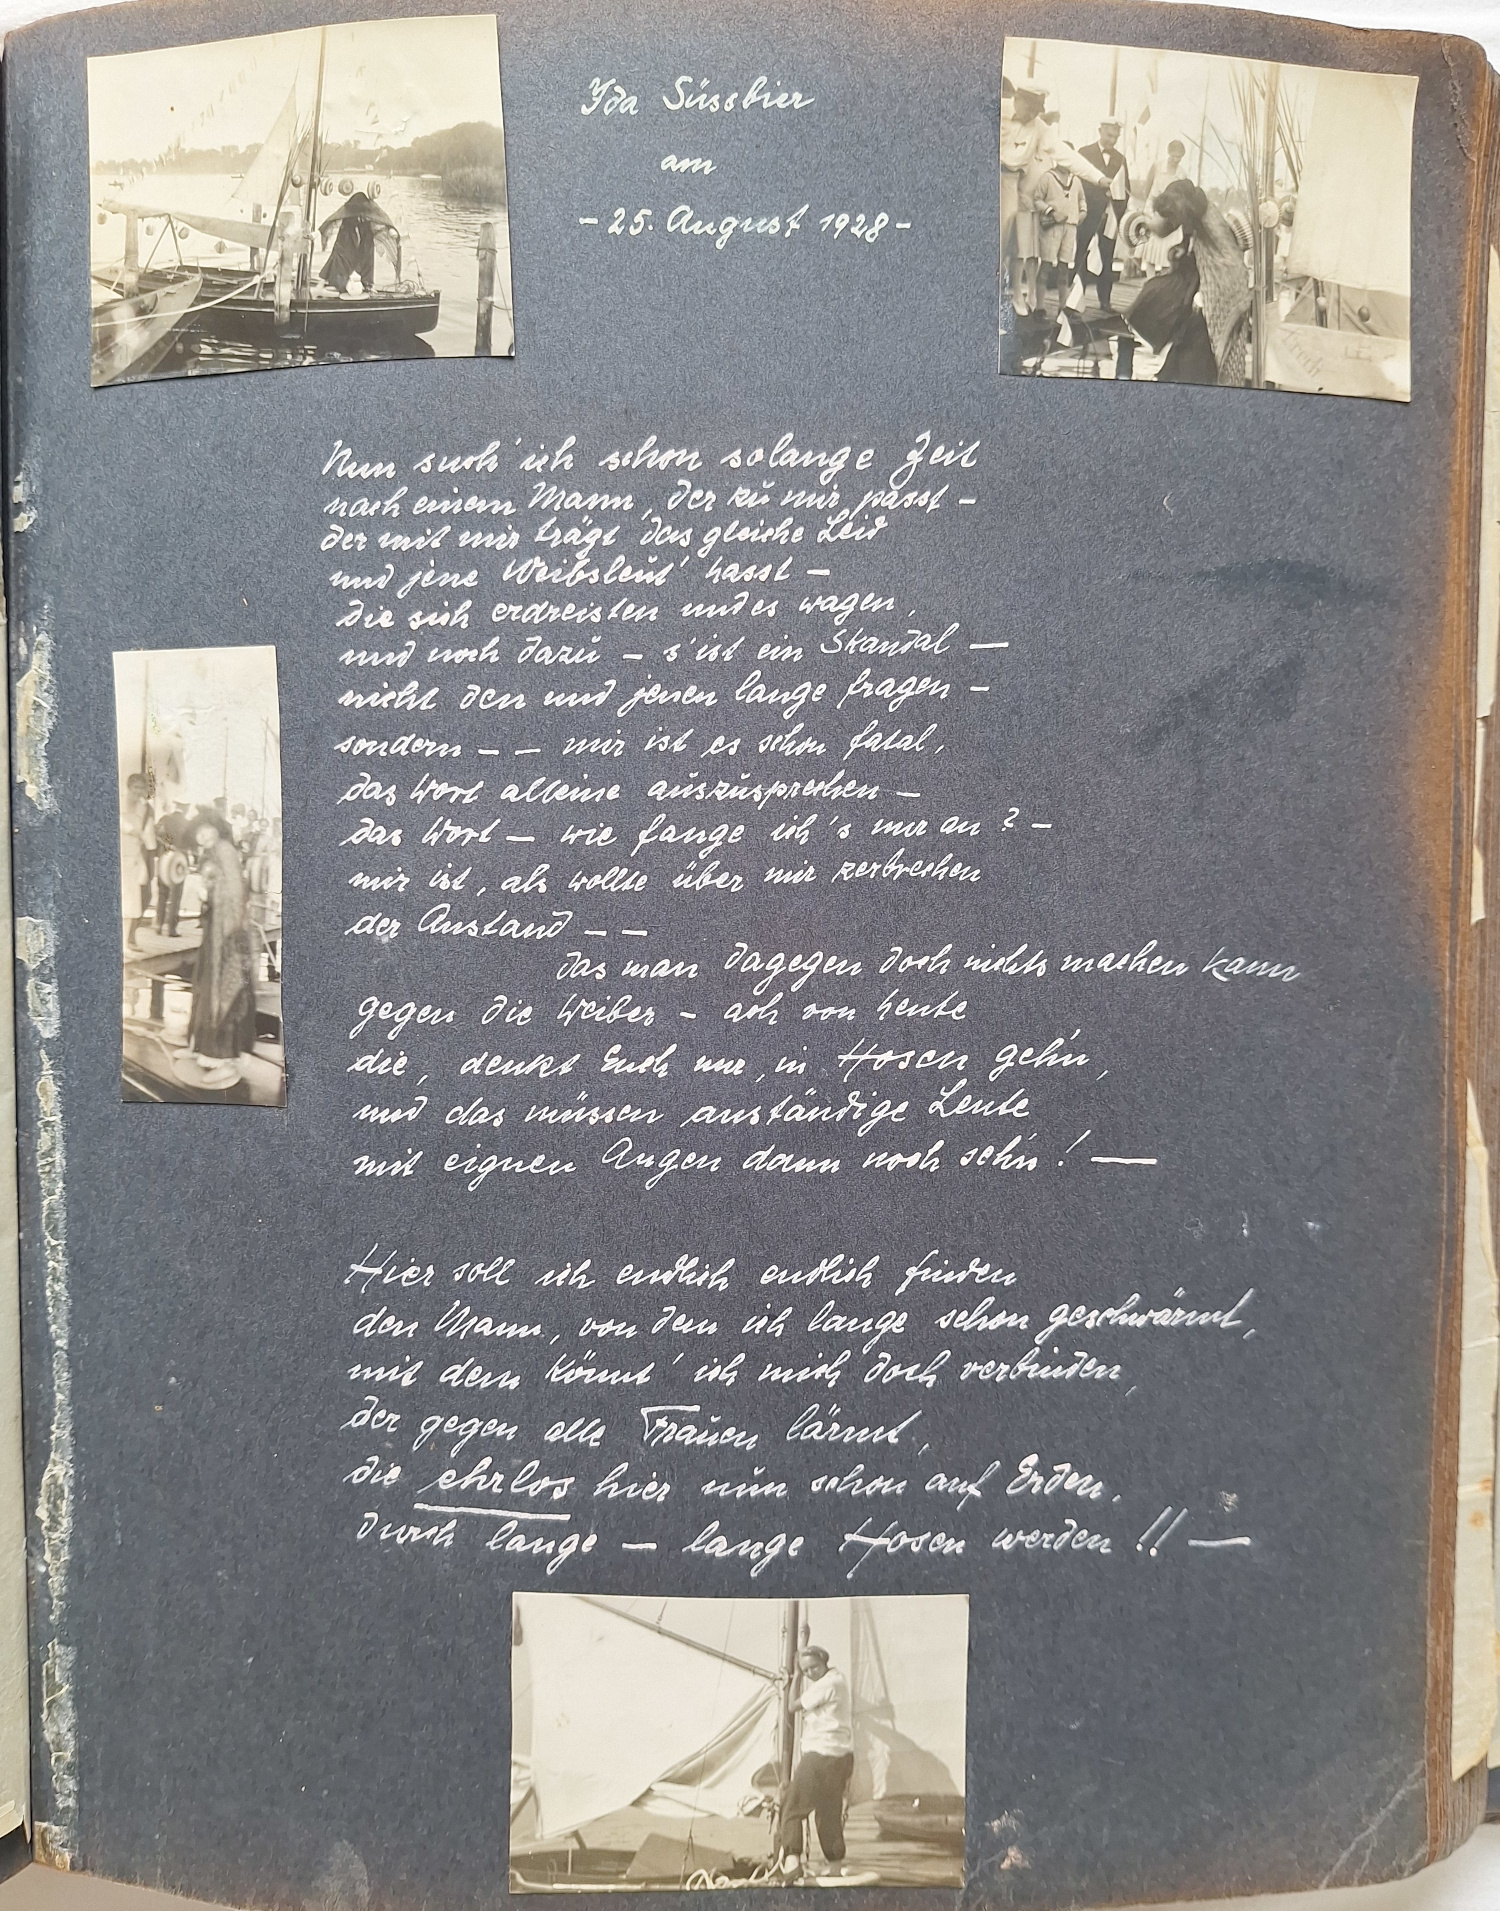 Ida Süssbier
am
- 25. August 1928 -
Nun such' ich schon solange Zeit
nach einem Mann, der zu mir passt -
der mit mir trägt das gleiche Leid
und jene Weibsleut' hasst -
die sich erdreisten und es wagen,
und noch dazu - s'ist ein Skandal —
nicht den und jenen lange fragen -
sondern - - mir ist es schon fatal,
das Wort alleine auszusprechen -
das Wort - wie fange ich's nur an? -
mir ist, als wollte über mir zerbrechen
der Anstand - -
das man dagegen doch nichts machen kann
gegen die Weiber - ach von heute
die, denkt Euch nur, in Hosen geh'n,
und das müssen anständige Leute
mit eignen Augen dann noch seh'n! —
Hier soll ich endlich endlich finden
den Mann, von dem ich lange schon geschwärmt,
mit dem könnt' ich mich doch verbinden,
der gegen alle Frauen lärmt,
die ehrlos hier nun schon auf Erden,
durch lange - lange Hosen werden!! —